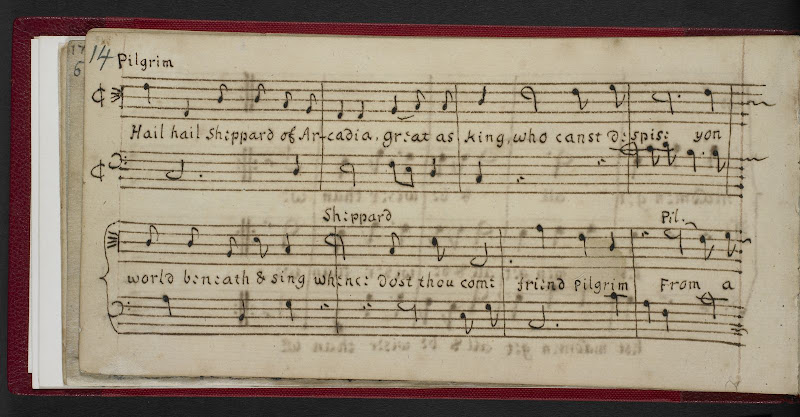 14 Pilgrim
17
6
Hail hail Sheppard of Ar-cadia, great as king, who canst Despise yon
Sheppard Pil.
world beneath & sing whence Do'st thou come friend Pilgrim From a